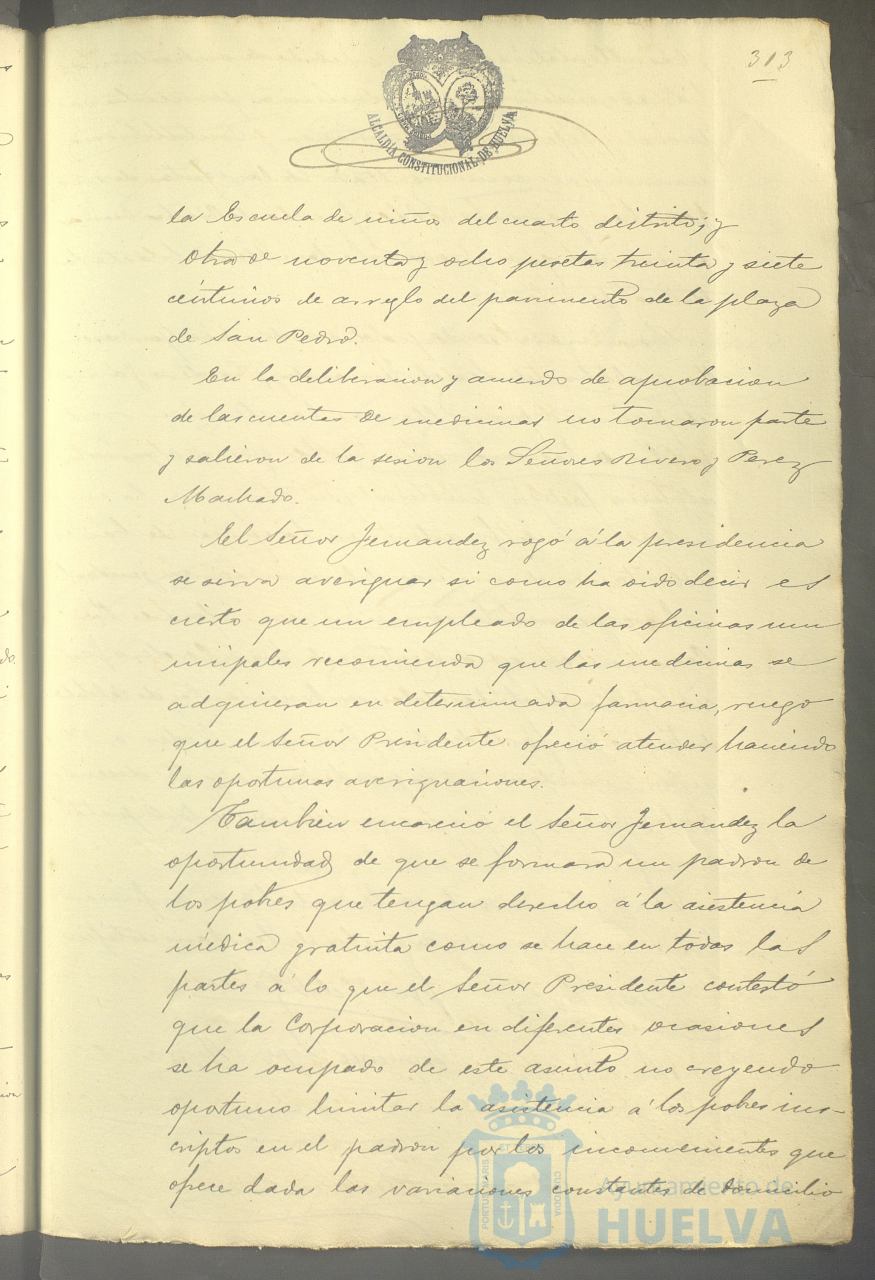 313
ALCALDÍA CONSTITUCIONAL DE HUELVA
la Escuela de niños del cuarto distrito; y
otra de noventa y ocho pesetas treinta y siete
céntimos de arreglo del pavimento de la plaza
de San Pedro.
En la deliberacion y acuerdo de aprobacion
de las cuentas de medicinas no tomaron parte
y salieron de la sesion los Señores Rivero y Perez
Machado.
El Señor Jernandez rogó á la presidencia
se sirva averiguar si como ha oido decir es
cierto que un empleado de las oficinas mu
nicipales recomienda que las medicinas se
adquieran en determinada farmacia, ruego
que el Señor Presidente ofreció atender haciendo
las oportunas averiguaciones.
Tambien encareció el Señor Jernandez la
oportunidad de que se formara un padron de
los pobres que tengan derecho á la asistencia
médica gratuita como se hace en todas las
partes á lo que el Señor Presidente contestó
que la Corporacion en diferentes ocasiones
se ha ocupado de este asunto no creyendo
oportuno limitar la asistencia á los pobres ins-
criptos en el padron por los inconvenientes que
ofrece dada las variaciones constantes de domicilio
PORTUS MARIS ET TERRAE CUSTODIA
Ayuntamiento de
HUELVA